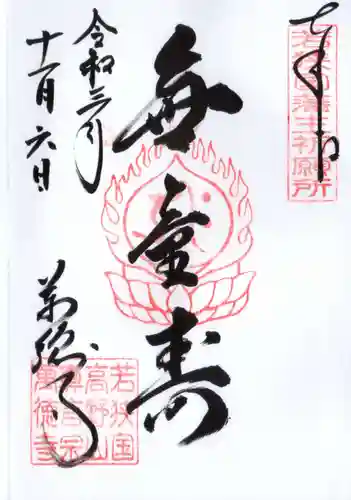 奉拝
若狭国蓮生祈願所
無量寿
令和三年
十一月六日
萬徳寺
若狭国
高野山
真言宗
萬徳寺